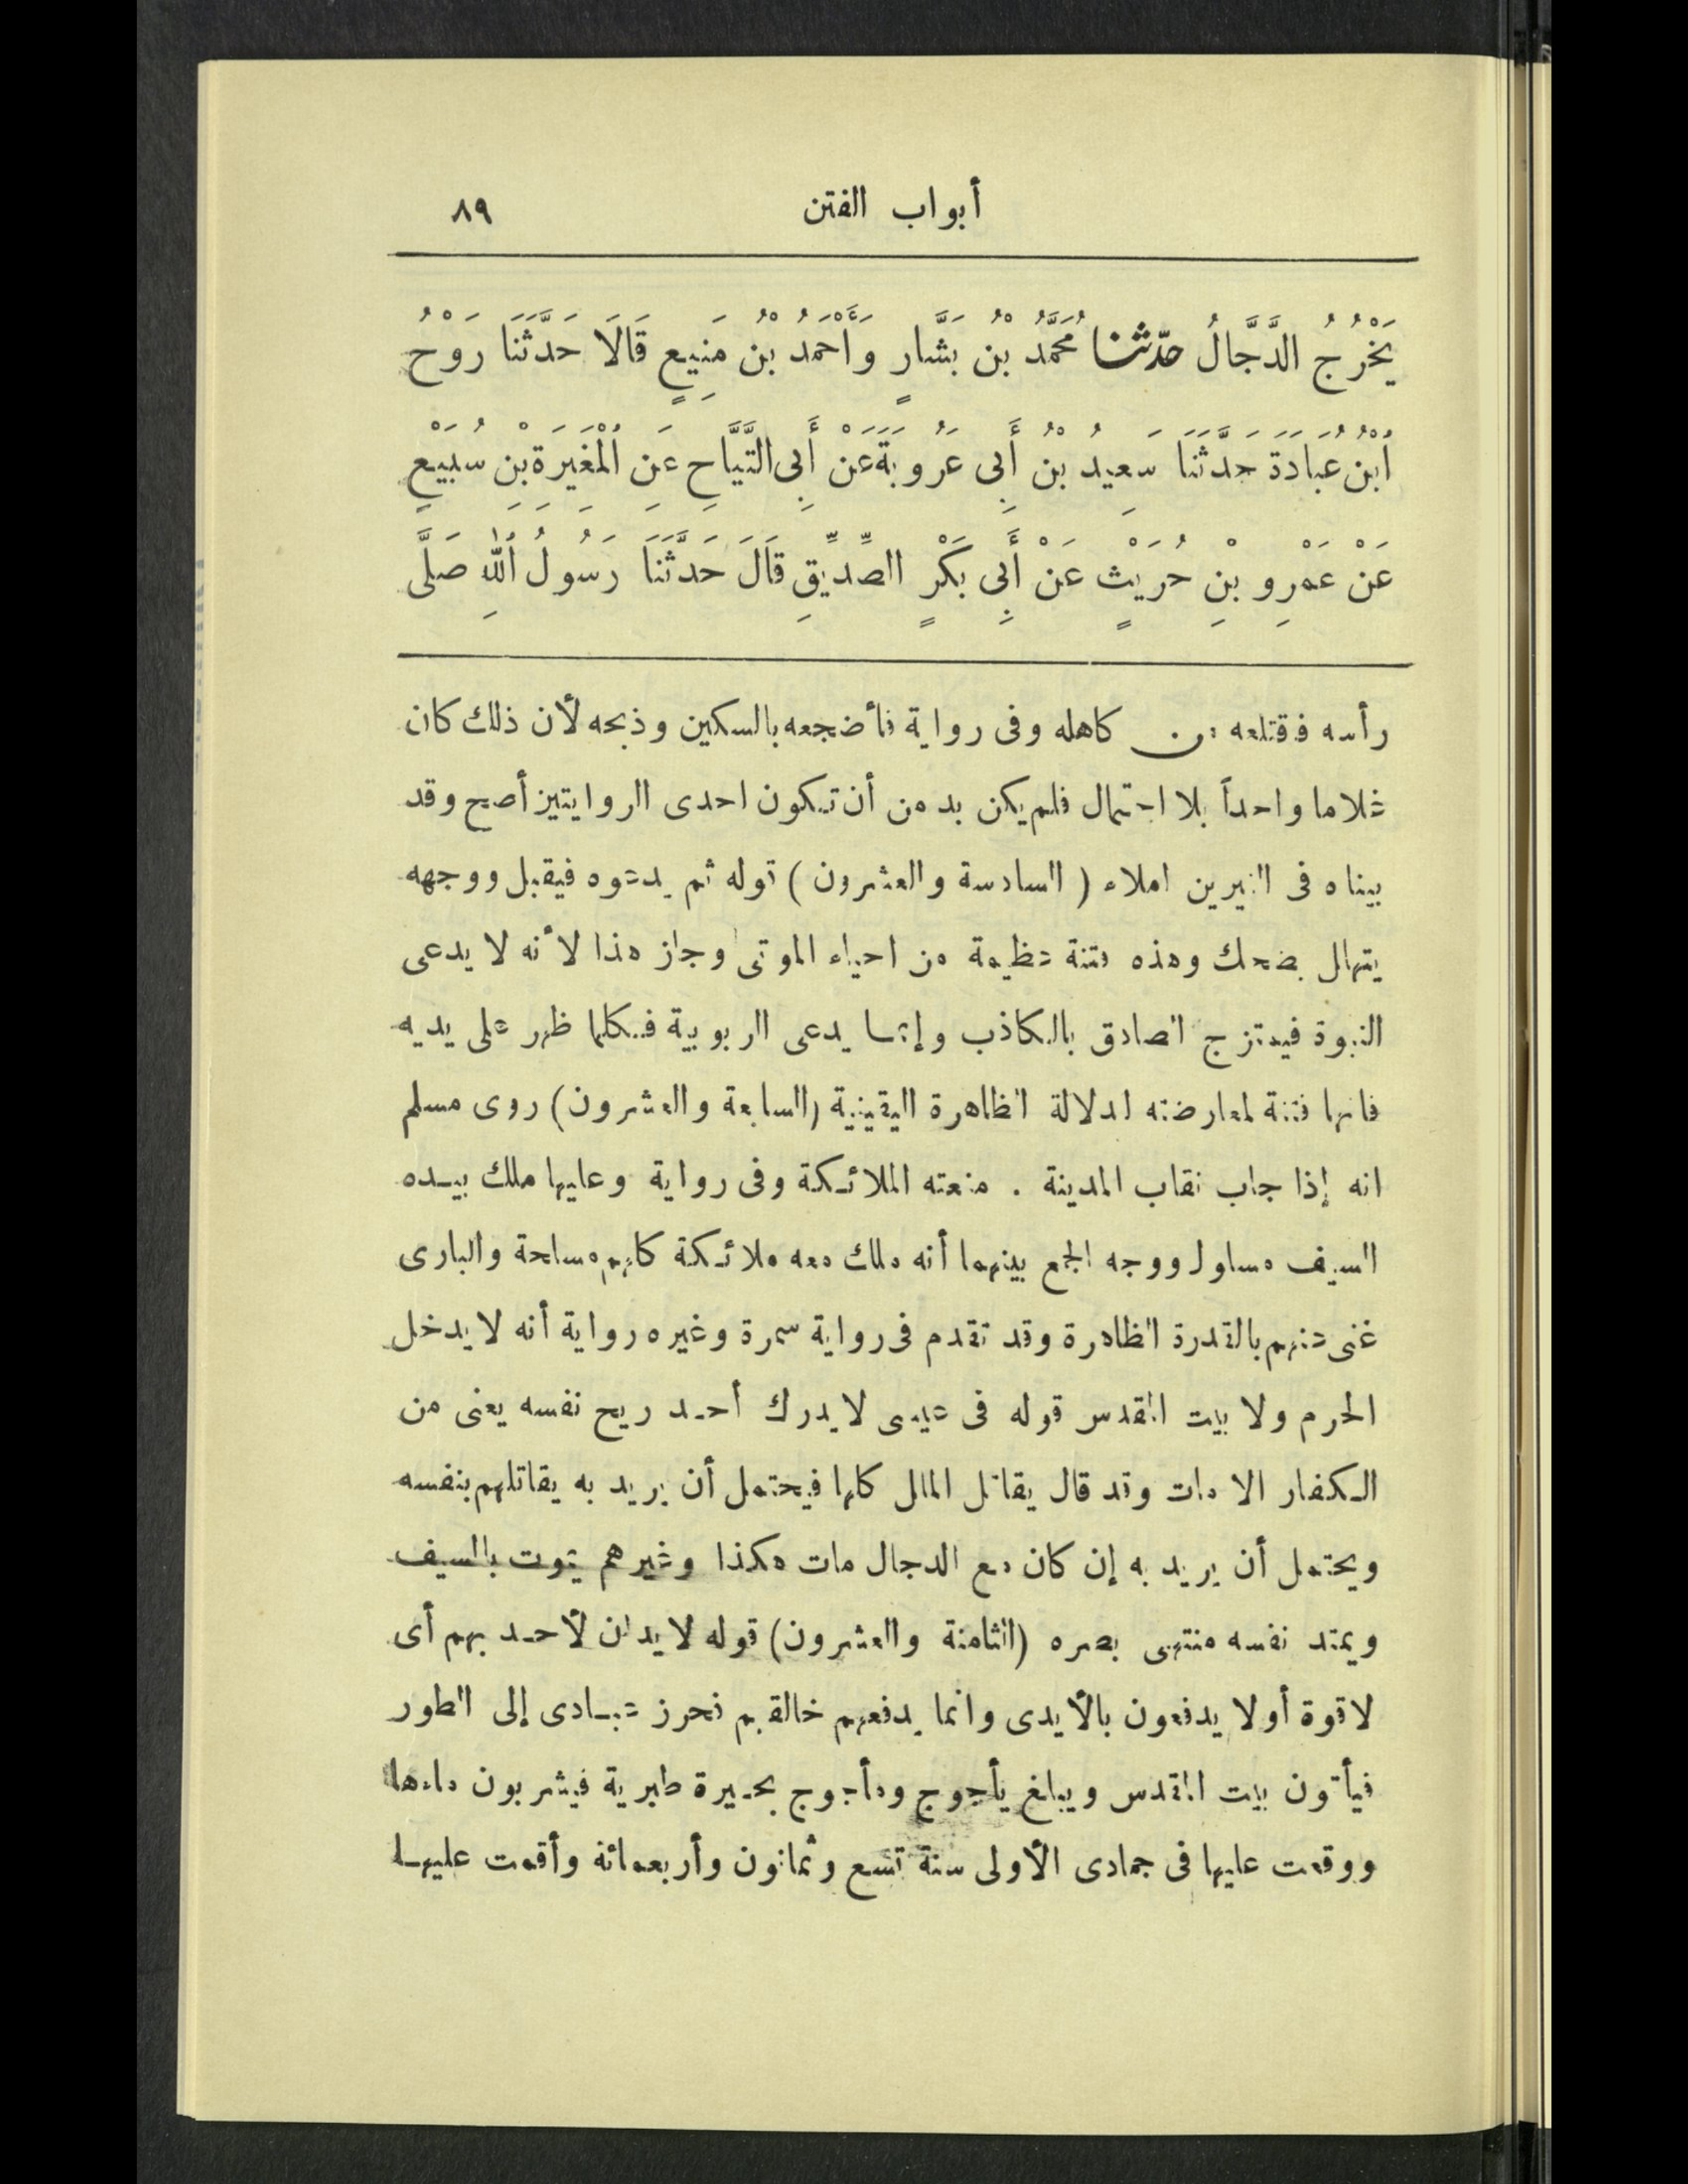 أبواب الفتن ٨٩
يَخْرُجُ الدَّجَّالُ حدّثنا مُحَمَّدُ بْنُ بَشَّارٍ وَأَحْمَدُ بْنُ مَنِيعٍ قَالَا حَدَّثَنَا رَوْحُ
ابْنُ عُبَادَةَ حَدَّثَنَا سَعِيدُ بْنُ أَبِى عَرُوبَةَ عَنْ أَبِى التَّيَّاحِ عَنِ الْمُغِيرَةِ بْنِ سُبَيْعٍ
عَنْ عَمْرِو بْنِ حُرَيْثٍ عَنْ أَبِى بَكْرٍ الصِّدِّيقِ قَالَ حَدَّثَنَا رَسُولُ اللهِ صَلَّى
رأسه فقتلعه من كاهله وفى رواية فأضجعه بالسكين وذبحه لأن ذلك كان
واحداً بلا احتمال فلم يكن بد من أن تكون احدى الروايتين أصح وقد
بيناه فى النيرين املاء ( السادسة والعشرون ) قوله ثم يدعوه فيقبل ووجهه
يتهلل يضحك وهذه فتنة عظيمة من احياء الموتى وجاز هذا لأنه لا يدعى
النبوة فيمتزج الصادق بالكاذب وإنما يدعى الربوبية فكلما ظهر على يديه
فانها فتنة لمعارضته لدلالة الظاهرة اليقينية (السابعة والعشرون) روى مسلم
انه إذا جاب نقاب المدينة . منعته الملائكة وفى رواية وعليها ملك بيده
السيف مسلول ووجه الجمع بينهما أنه ملك معه ملائكة كلهم مسلحة والبارى
غنى عنهم بالقدرة الظاهرة وقد تقدم فى رواية سمرة وغيره رواية أنه لا يدخل
الحرم ولا بيت المقدس قوله فى عيسى لا يدرك أحد ريح نفسه يعنى من
الكفار الا مات وقد قال يقاتل الملل كلها فيحتمل أن يريد به يقاتلهم بنفسه
ويحتمل أن يريد به إن كان مع الدجال مات هكذا وغيرهم يموت بالسيف
ويمتد نفسه منتهى بصره (الثامنة والعشرون) قوله لا يدان لأحد بهم أى
لا قوة أو لا يدفعون بالأيدى وانما يدفعهم خالقهم فحرز عبادى إلى الطور
فيأتون بيت المقدس ويبلغ يأجوج ومأجوج بحيرة طبرية فيشربون ماءها
ووقعت عليها فى جمادى الأولى سنة تسع وثمانون وأربعمائة وأقمت عليها